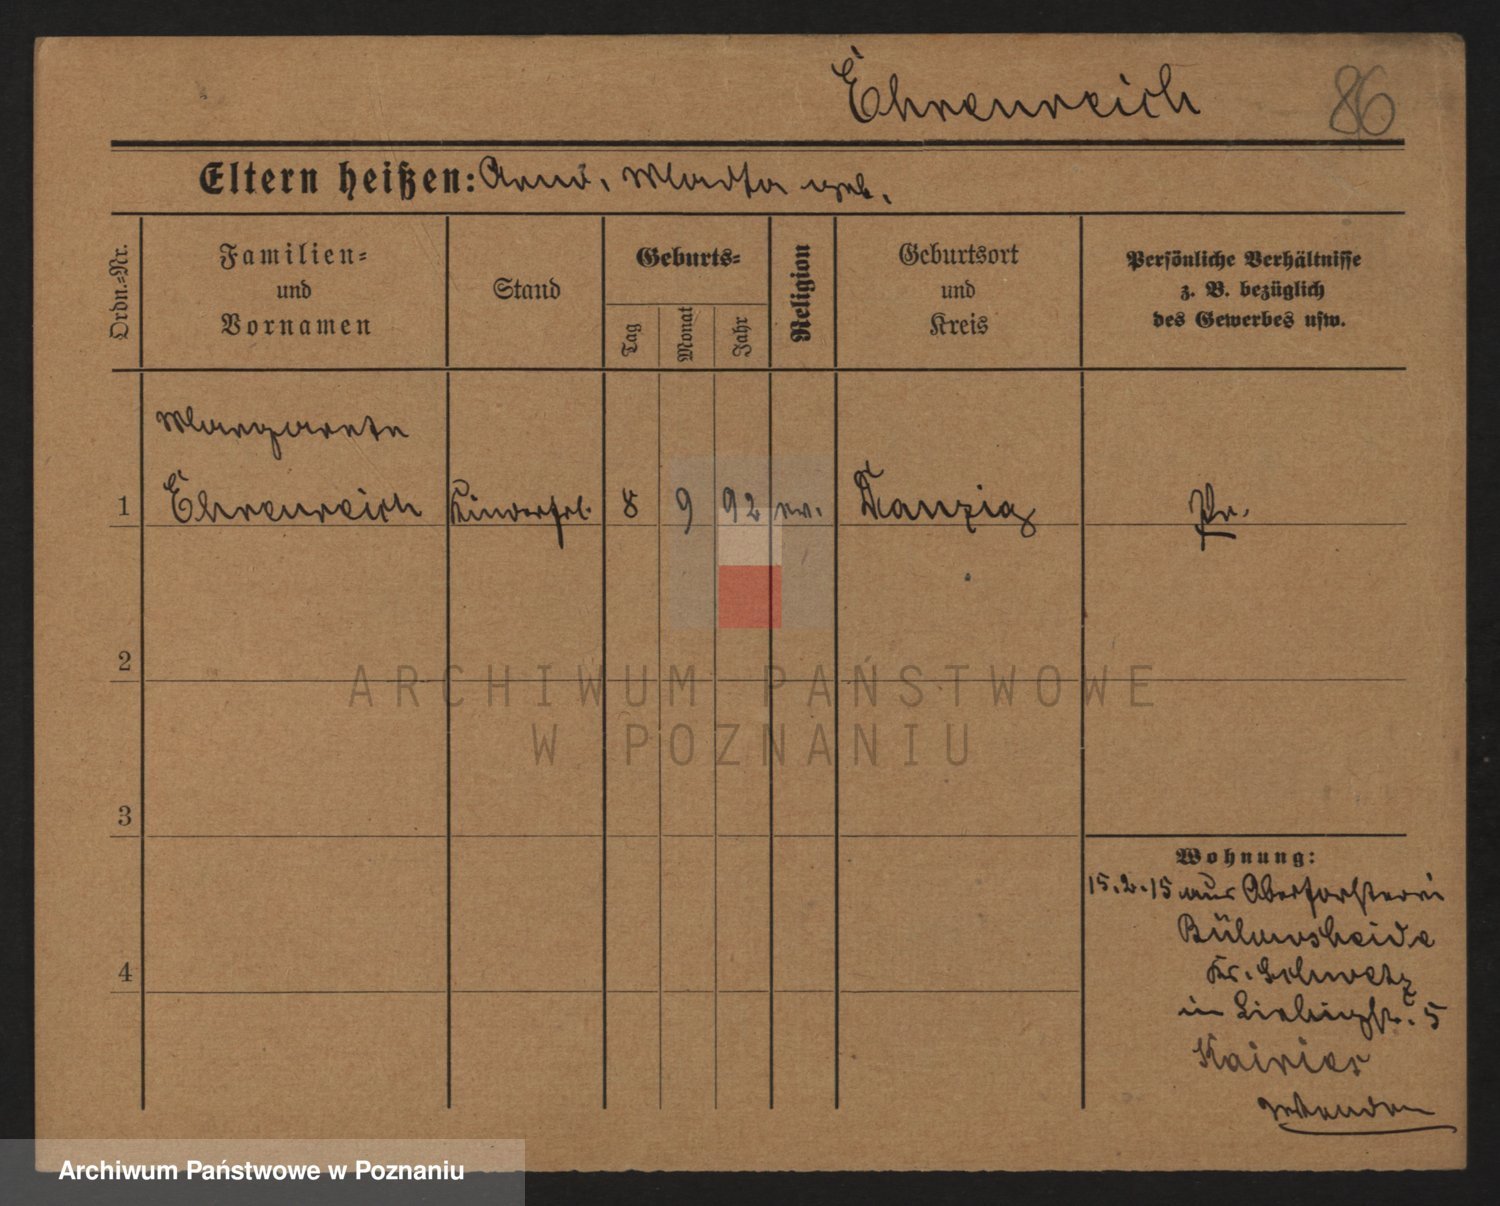 Ehrenreich 86
Eltern heißen: Arno. Martha geb.
Ordn.=Nr.
Familien=
und
Vornamen
Stand
Geburts=
Tag
Monat
Jahr
Religion
Geburtsort
und
Kreis
Persönliche Verhältnisse
z. B. bezüglich
des Gewerbes usw.
Margarete
1 Ehrenreich Kinderfrl. 8 9 92 ev. Danzig Pr.
2
3
4
Wohnung:
15.2.15 aus Oberförsterei
Bülowsheide
Kr. Schwetz
in Liebigstr. 5
Kairies
wenden
ARCHIWUM PAŃSTWOWE
W POZNANIU
Archiwum Państwowe w Poznaniu